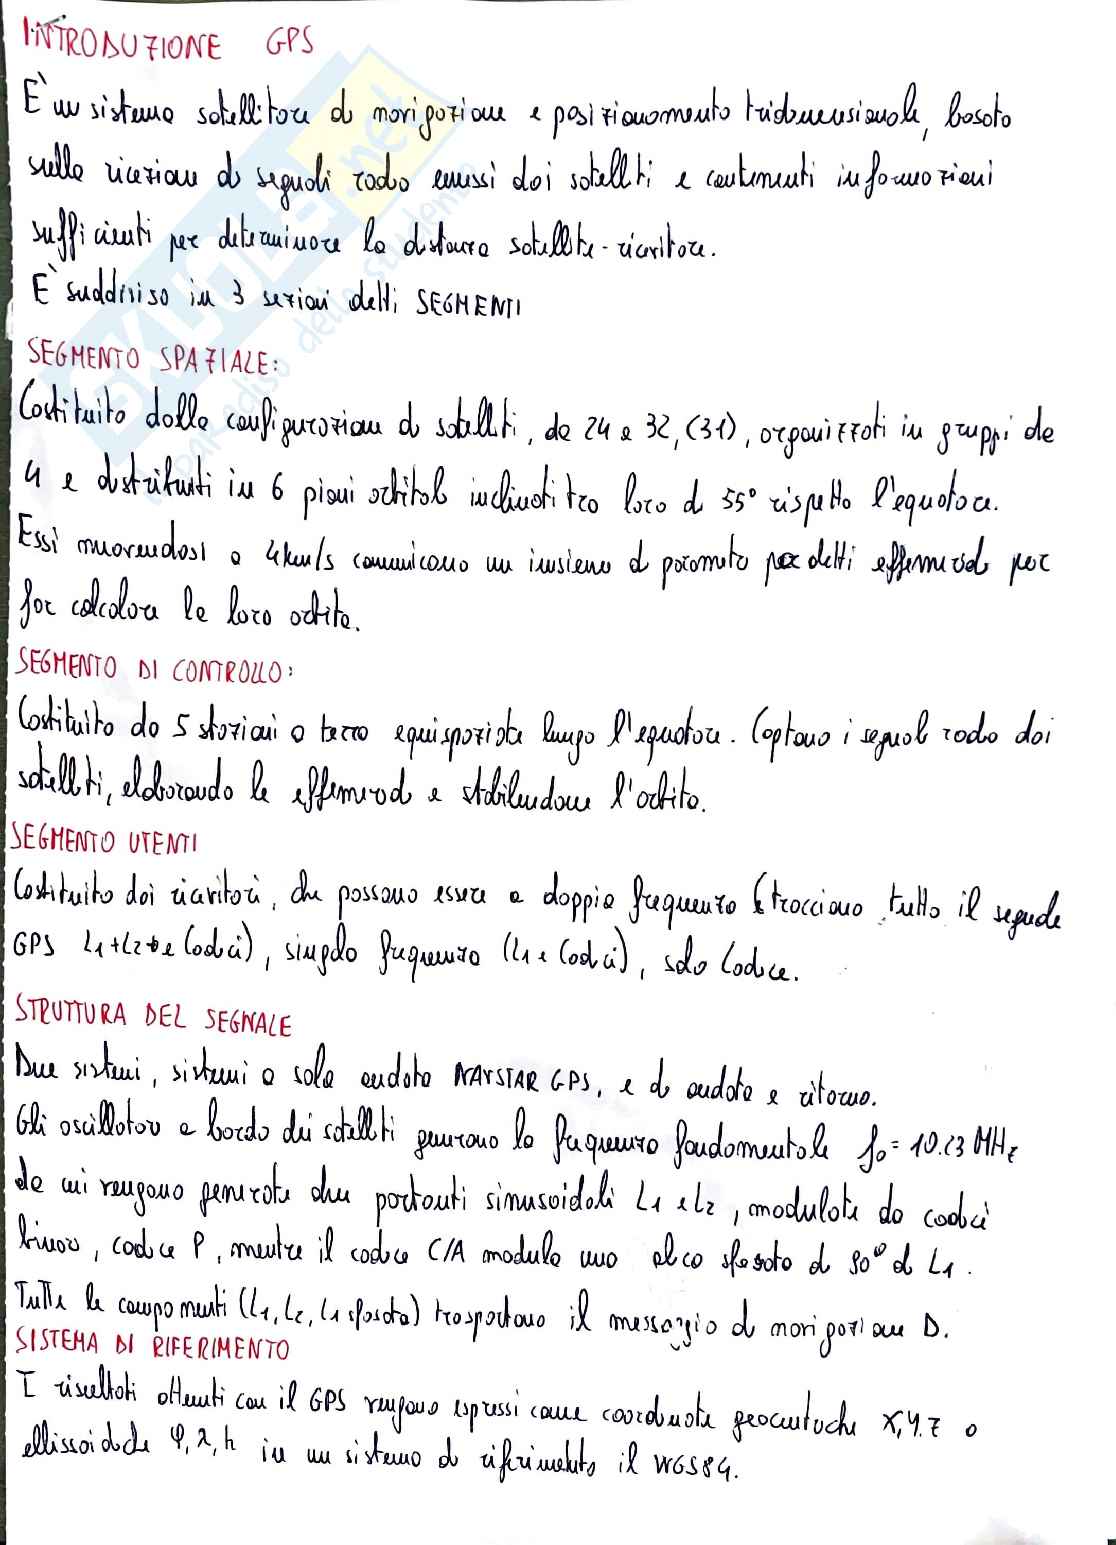 INTRODUZIONE GPS
È un sistema satellitare di navigazione e posizionamento tridimensionale, basato
sulla ricezione di segnali radio emessi dai satelliti e contenenti informazioni
sufficienti per determinare la distanza satellite-ricevitore.
È suddiviso in 3 sezioni detti SEGMENTI
SEGMENTO SPAZIALE:
Costituito dalla configurazione di satelliti, da 24 a 32, (31), organizzati in gruppi da
4 e distribuiti in 6 piani orbitali inclinati tra loro di 55° rispetto l'equatore.
Essi muovendosi a 4km/s comunicano un insieme di parametri detti effemeridi per
far calcolare le loro orbite.
SEGMENTO DI CONTROLLO:
Costituito da 5 stazioni a terra equispaziate lungo l'equatore. Captano i segnali radio dai
satelliti, elaborando le effemeridi e stabilendone l'orbita.
SEGMENTO UTENTI
Costituito dai ricevitori, che possono essere a doppia frequenza (tracciano tutto il segnale
GPS L1+L2 e Codici), singola frequenza (L1 e Codici), solo Codice.
STRUTTURA DEL SEGNALE
Due sistemi, sistemi a sola andata NAVSTAR GPS, e di andata e ritorno.
Gli oscillatori a bordo dei satelliti generano la frequenza fondamentale f0 = 10.23 MHz
da cui vengono generate due portanti sinusoidali L1 e L2, modulate da codici
binari, codice P, mentre il codice C/A modula una eco sfasata di 90° di L1.
Tutte le componenti (L1, L2, L1 sfasata) trasportano il messaggio di navigazione D.
SISTEMA DI RIFERIMENTO
I risultati ottenuti con il GPS vengono espressi come coordinate geocentriche X,Y,Z o
ellissoidiche φ, λ, h in un sistema di riferimento il WGS84.
SKUOLA.net
il paradiso dello studente